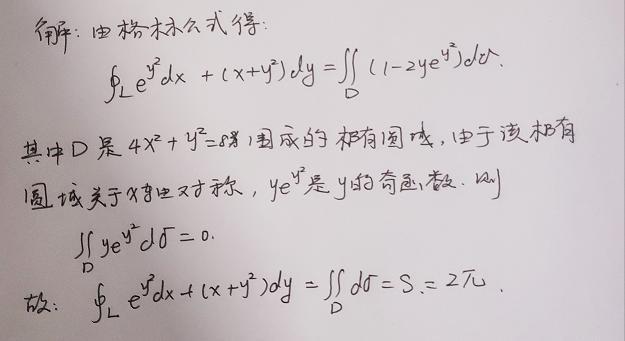 解:由格林公式得:
∮_L e^{y²}dx + (x+y²)dy = ∬_D (1-2ye^{y²})dσ.
其中D是 4x²+y²=8x 围成的椭圆域,由于该椭圆
圆域关于x轴对称,ye^{y²}是y的奇函数.则
∬_D ye^{y²}dσ=0.
故: ∮_L e^{y²}dx+(x+y²)dy = ∬_D dσ = S = 2π.